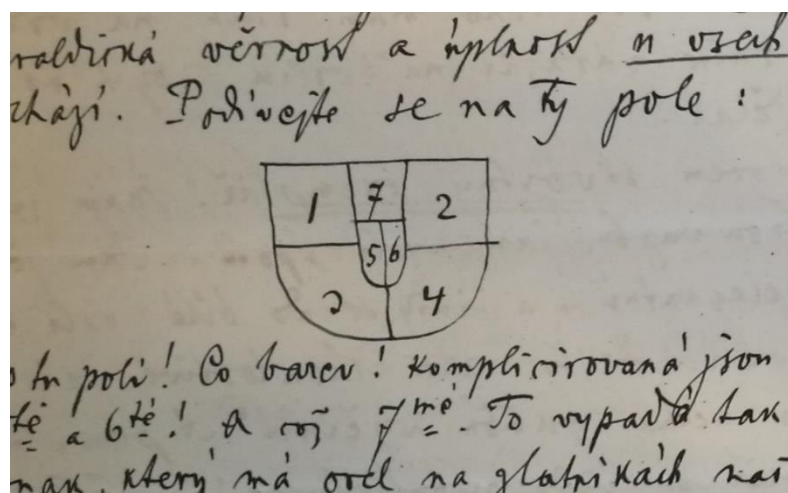 raldická věrnost a úplnost u všech
chází. Podívejte se na ty pole:
1 7 2
5 6
3 4
tu polí! Co barev! Komplicirovaná jsou
té a 6té! A což 7mé. To vypadá tak
nak, který má orel na